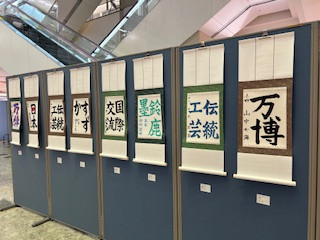 万博
伝統
工芸
鈴鹿
墨
国際
交流
すず
か
伝統
工芸
日本
万博